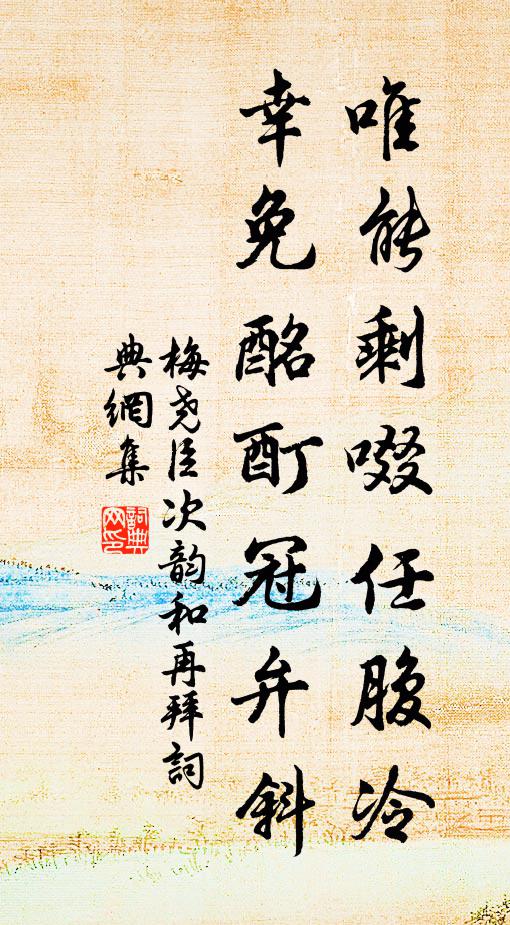 唯能剩啜任腹冷
幸免酩酊冠弁斜
梅尧臣次韵和再拜詞
典網集
詞典網印